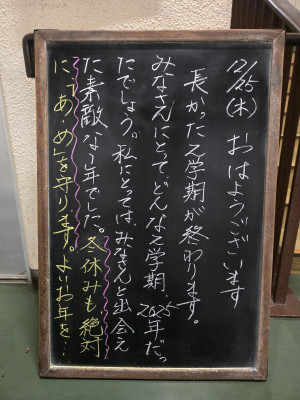 12/25(木) おはようございます
長かった2学期が終わります。
みなさんにとって、どんな2学期、2025年だっ
たでしょう。私にとっては、みなさんと出会え
た素敵な1年でした。冬休みも絶対
に「あ・め」を守ります。よいお年を…